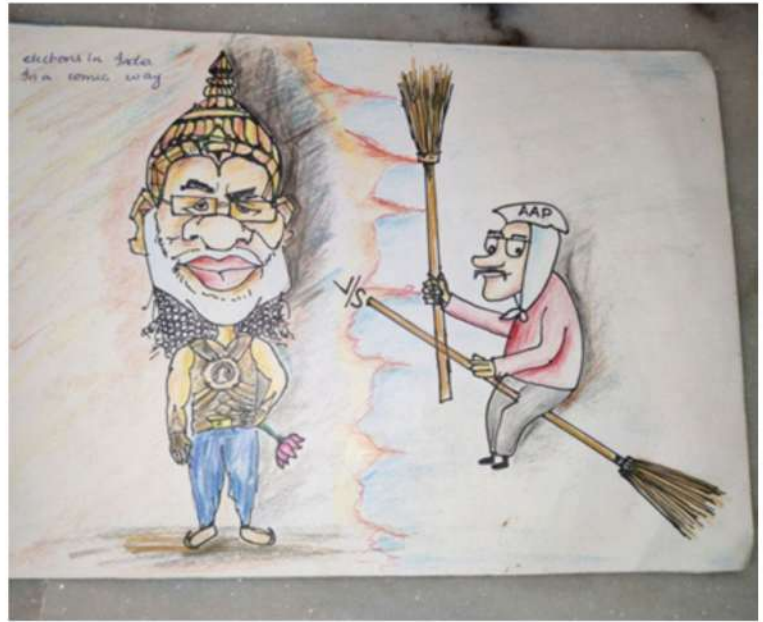 elections in India
In a comic way
V/S
AAP